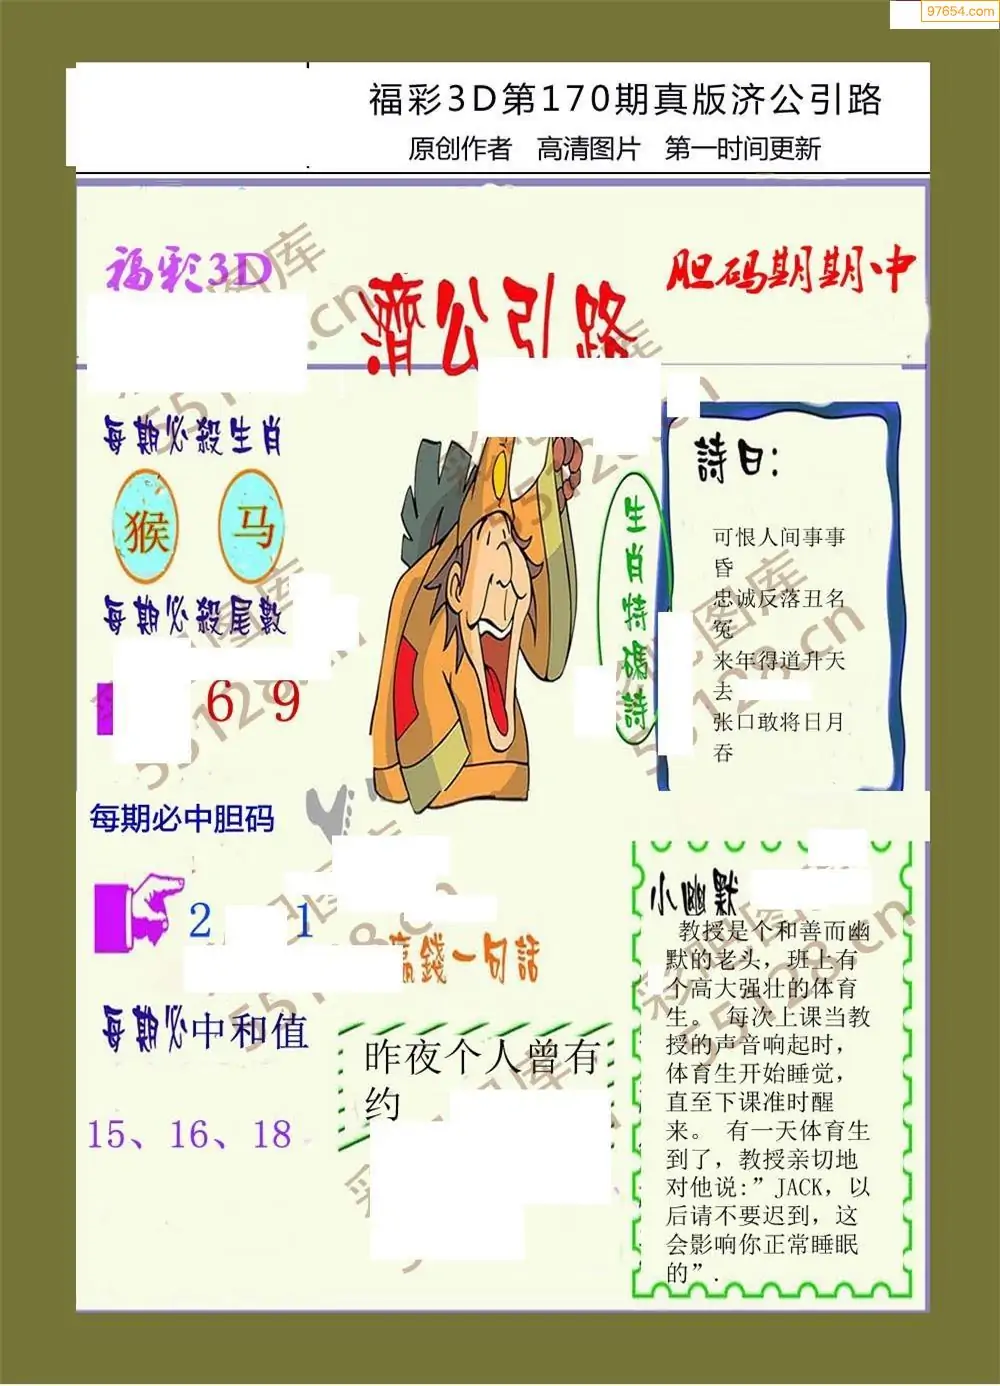 97654.com
福彩3D第170期真版济公引路
原创作者 高清图片 第一时间更新
福彩3D
濟公引路
胆码期期中
每期必殺生肖
猴 马
每期必殺尾數
6 9
每期必中胆码
2 1
每期必中和值
15、16、18
生肖特碼詩
詩曰:
可恨人间事事
昏
忠诚反落丑名
冤
来年得道升天
去
张口敢将日月
吞
赢錢一句話
昨夜个人曾有
约
小幽默
教授是个和善而幽
默的老头，班上有
个高大强壮的体育
生。 每次上课当教
授的声音响起时，
体育生开始睡觉，
直至下课准时醒
来。 有一天体育生
到了，教授亲切地
对他说:”JACK，以
后请不要迟到，这
会影响你正常睡眠
的”.
彩吧图库
55128.cn